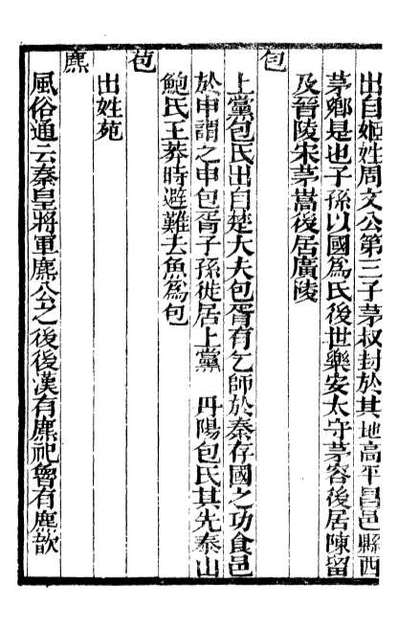 出自姬姓周文公第三子茅叔封於其地高平昌邑縣西
茅鄉是也子孫以國爲氏後世樂安太守茅容後居陳留
及晉陵宋茅嵩後居廣陵
包
上黨包氏出自楚大夫包胥有乞師於秦存國之功食邑
於申謂之申包胥子孫徙居上黨 丹陽包氏其先泰山
鮑氏王莽時避難去魚爲包
苞
出姓苑
麃
風俗通云秦皇將軍麃公之後後漢有麃祀魯有麃歆